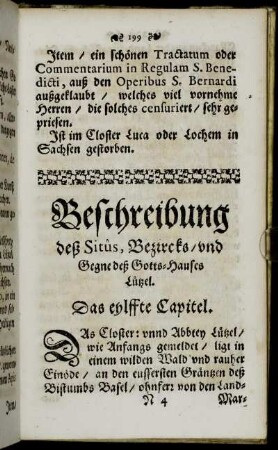 199
Item / ein schönen Tractatum oder
Commentarium in Regulam S. Bene-
dicti, auß den Operibus S. Bernardi
außgeklaubt / welches viel vornehme
Herren / die solches censuriert / sehr ge-
priesen.
Ist im Closter Luca oder Lochem in
Sachsen gestorben.
Beschreibung
deß Sitûs, Bezircks / vnd
Gegne deß Gotts-Hauses
Lützel.
Das eylffte Capitel.
DAs Closter: vnnd Abbtey Lützel /
wie Anfangs gemeldet / ligt in
einem wilden Wald vnd rauher
Einöde / an den eussersten Gräntzen deß
Bistumbs Basel / ohnfer: von den Land-
N 4 Mar-